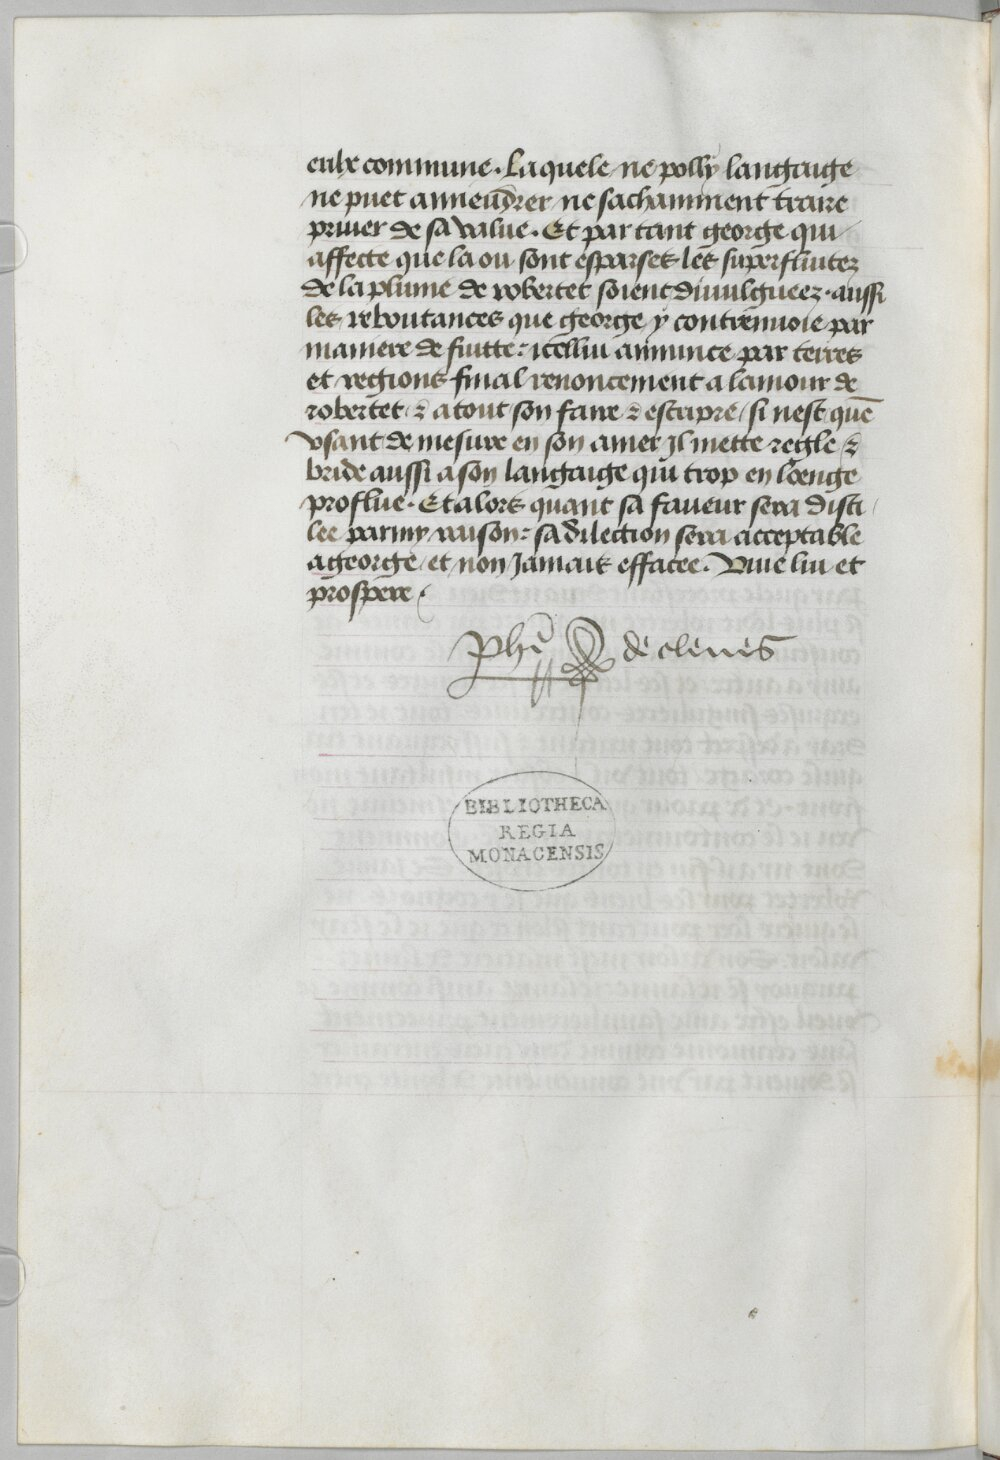 eulx commune. Laquele ne polly langaige
ne puet amendrer ne sachamment traire
priuer de sa value. Et par tant george qui
affecte que la ou sont esparses les superfluitez
de la plume de robertet soient diuulgueez. aussi
les reboutances que george y contrenuoie par
maniere de fuitte: icellui annunce par terres
et regions final renoncement a lamour de
robertet & a tout son faire & escripre / si nest que
vsant de mesure en son amer Jl mette regle &
bride aussi a son langaige qui trop en loenge
proflue. Et alors quant sa faueur sera disti
lee parmy raison: sa dilection sera acceptable
a george / et non Jamais effacee. Viue lui et
prospere /
Phe de cleues
BIBLIOTHECA
REGIA
MONACENSIS